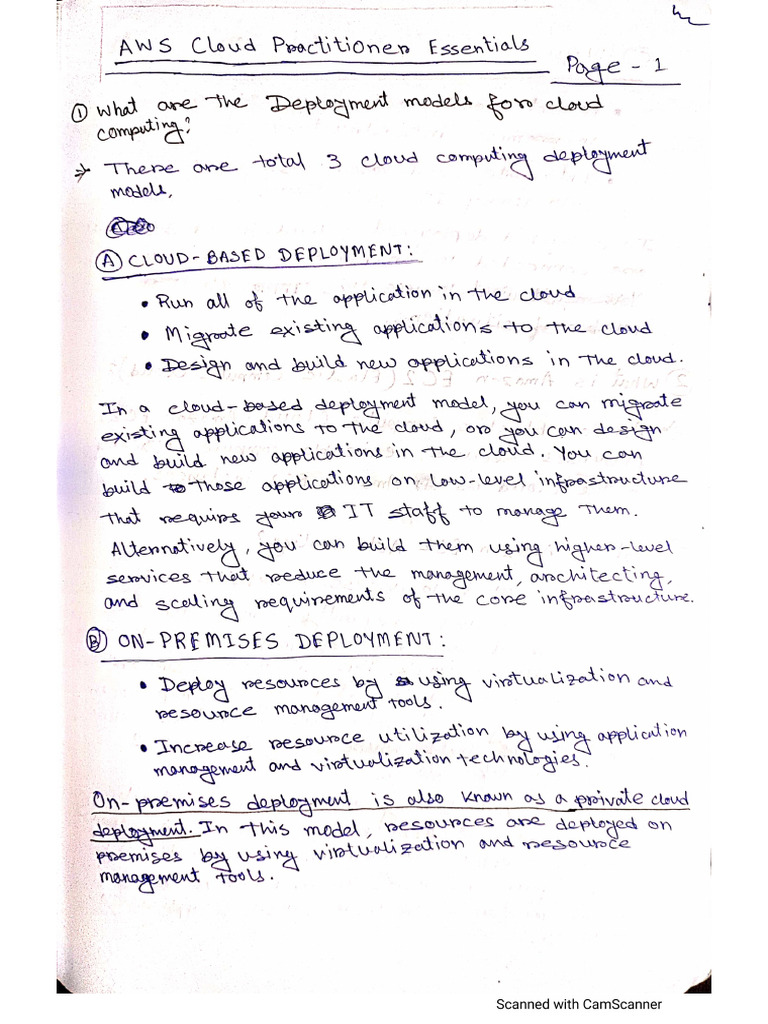 AWS Cloud Practitioner Essentials
Page - 1
① What are the Deployment models for cloud
computing?
→ There are total 3 cloud computing deployment
models,
Ⓐ CLOUD-BASED DEPLOYMENT:
• Run all of the application in the cloud
• Migrate existing applications to the cloud
• Design and build new applications in the cloud.
In a cloud-based deployment model, you can migrate
existing applications to the cloud, or you can design
and build new applications in the cloud. You can
build those applications on low-level infrastructure
that requirs your IT staff to manage them.
Alternatively, you can build them using higher-level
services that reduce the management, architecting,
and scaling requirements of the core infrastructure.
Ⓑ ON-PREMISES DEPLOYMENT:
• Deploy resources by using virtualization and
resource management tools.
• Increase resource utilization by using application
management and virtualization technologies.
On-premises deployment is also known as a private cloud
deployment. In this model, resources are deployed on
premises by using virtualization and resource
management tools.
Scanned with CamScanner